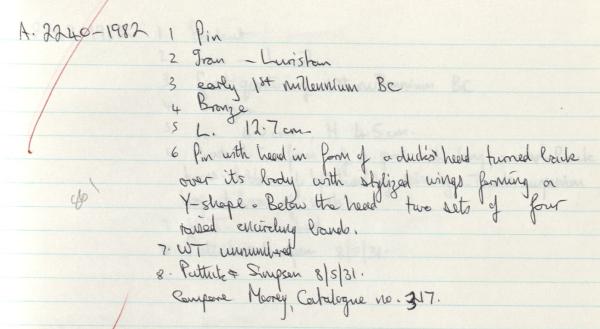 A. 2240-1982 1 Pin
2 Iran - Luristan
3 early 1st millennium BC
4 Bronze
5 L. 12.7cm
6 Pin with head in form of a duck's head turned back
over its body with stylized wings forming a
Y-shape. Below the head two sets of four
raised encircling bands.
7. WT unnumbered
8. Puttick & Simpson 8/5/31.
Compare Moorey, Catalogue no. 317.